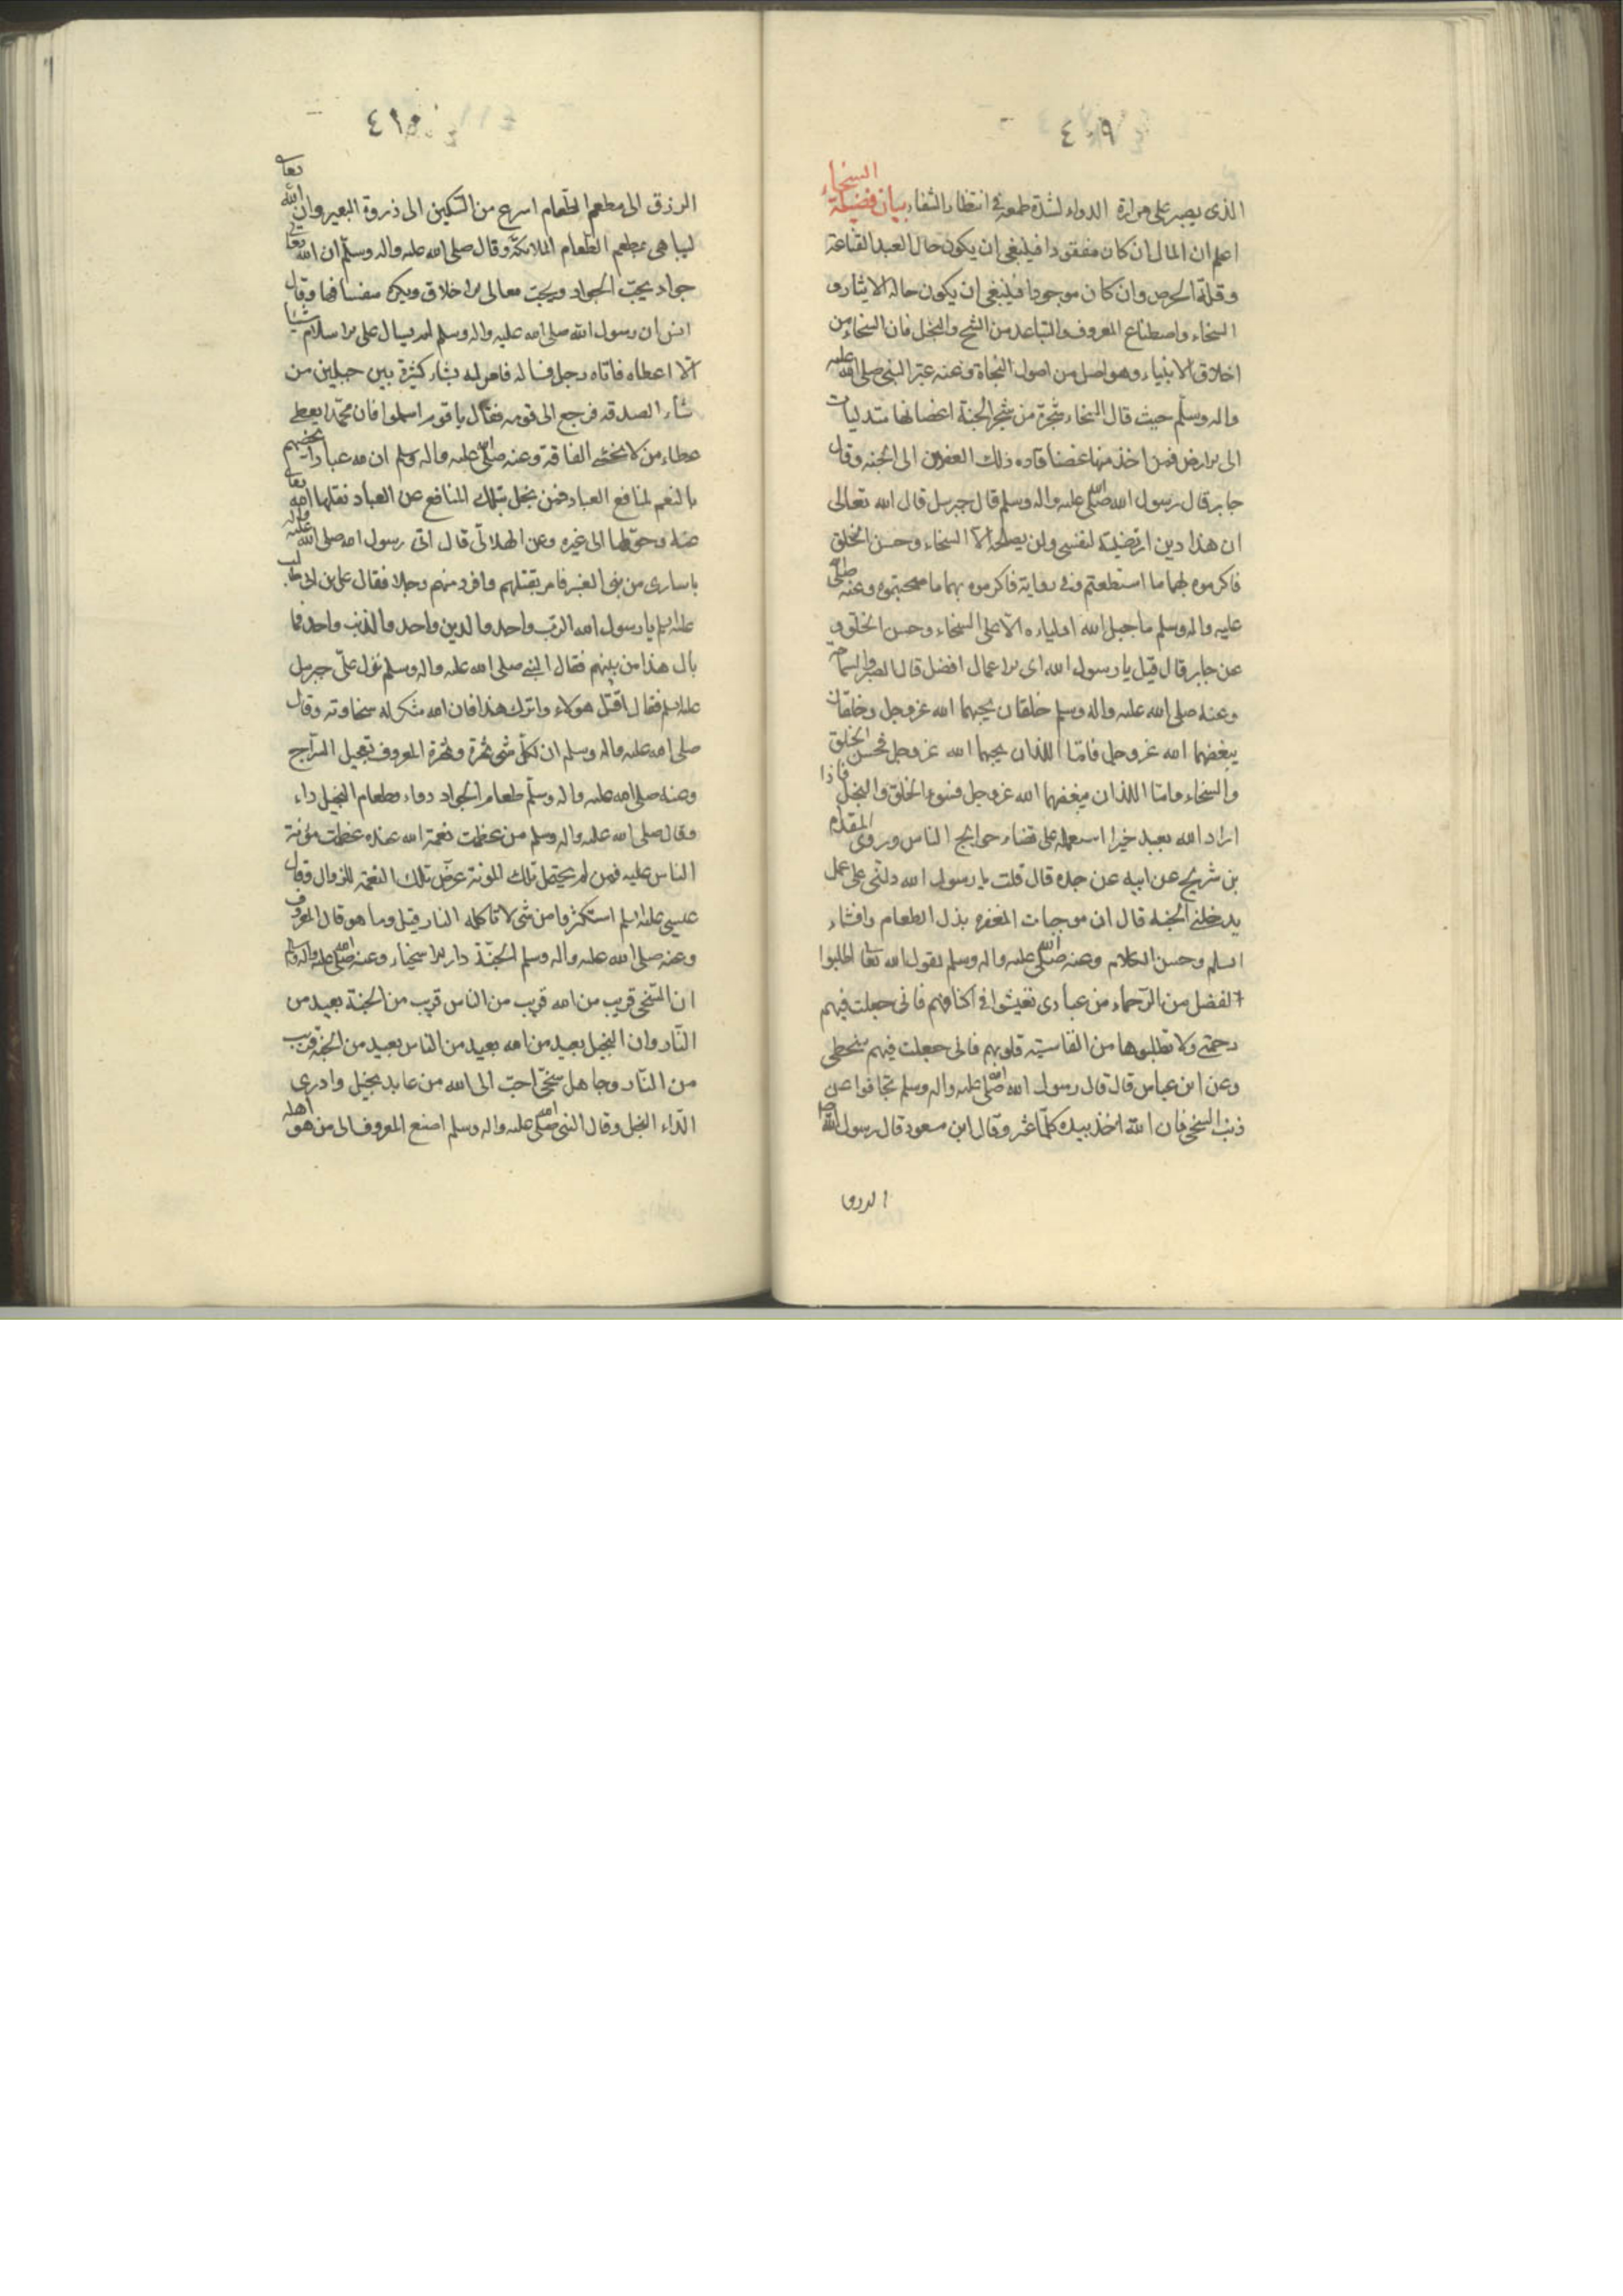 ٤٠٩
الذى يصبر على مرارة الدواء لشدة طمعه فى انتظار الشفاء بيان فضيلة السخاء
اعلم ان المال ان كان مفقودا فينبغى ان يكون حال العبد القناعة
وقلة الحرص وان كان موجودا فينبغى ان يكون حاله الايثار و
السخاء واصطناع المعروف والتباعد من الشح والبخل فان السخاء من
اخلاق الانبياء وهو اصل من اصول النجاة وعنه عبّر النبى صلى الله عليه
واله وسلم حيث قال السخاء شجرة من شجر الجنة اغصانها متدليات
الى الارض فمن اخذ منها غصنا قاده ذلك الغصن الى الجنه وقال
جابر قال رسول الله صلى الله عليه واله وسلم قال جبرىل قال الله تعالى
ان هذا دين ارتضيته لنفسى ولن يصلحه الا السخاء وحسن الخلق
فاكرموه بهما ما استطعتم وفى رواية فاكرموه بهما ما صحبتموه وعنه صلى الله
عليه واله وسلم ما جبل الله اولياءه الا على السخاء وحسن الخلق و
عن جابر قال قيل يا رسول الله اى الاعمال افضل قال الصبر والسماحة
وعنه صلى الله عليه واله وسلم خلقان يحبهما الله عز وجل وخلقان
يبغضهما الله عز وجل فامّا اللذان يحبهما الله عز وجل فحسن الخلق
والسخاء وامّا اللذان يبغضهما الله عز وجل فسوء الخلق والبخل فاذا
اراد الله بعبد خيرا استعمله على قضاء حوايج الناس وروى المقدام
بن شريح عن ابيه عن جده قال قلت يا رسول الله دلنى على عمل
يدخلنى الجنه قال ان موجبات المغفره بذل الطعام وافشاء
السلم وحسن الكلام وعنه صلى الله عليه واله وسلم يقول الله تعا اطلبوا
الفضل من الرّحماء من عبادى تعيشوا فى اكنافهم فانى جعلت فيهم
رحمتى ولا تطلبوها من القاسيه قلوبهم فانى جعلت فيهم سخطى
وعن ابن عباس قال قال رسول الله صلى الله عليه واله وسلم تجافوا عن
ذنب السخى فان الله اخذ بيده كلّما عثر وقال ابن مسعود قال رسول الله صلى
الرزق
٤١٠
الرزق الى مطعم الطعام اسرع من السّكين الى ذروة البعير وان الله تعا
ليباهى بمطعم الطعام الملائكة وقال صلى الله عليه واله وسلّم ان الله تعا
جواد يحبّ الجواد ويحبّ معالى الاخلاق ويكره سفسافها وقال
انس ان رسول الله صلى الله عليه واله وسلم لم يسال على الاسلام شيئا
الا اعطاه فاتاه رجل فساله فامر له بشاء كثيرة بين جبلين من
شاء الصدقه فرجع الى قومه فقال يا قوم اسلموا فان محمّدا يعطى
عطاء من لا يخشى الفاقة وعنه صلى الله عليه واله وسلم ان لله عبادا يخصهم
بالنعم لمنافع العباد فمن بخل بتلك المنافع عن العباد نقلها الله تعا
عنه وحوّلها الى غيره وعن الهلالى قال اتى رسول الله صلى الله عليه واله
باسارى من بنى العنبر فامر بقتلهم وافرد منهم رجلا فقال على بن ابى طالب
عليه السلم يا رسول الله الرّب واحد والدين واحد والذنب واحد فما
بال هذا من بينهم فقال النبى صلى الله عليه واله وسلم نزل علىّ جبرىل
عليه السلم فقال اقتل هولاء واترك هذا فان الله شكر له سخاوته وقال
صلى الله عليه واله وسلم ان لكلّ شى ثمرة وثمرة المعروف تعجيل السّراج
وعنه صلى الله عليه واله وسلّم طعام الجواد دواء وطعام البخيل داء
وقال صلى الله عليه واله وسلم من عظمت نعمة الله عنده عظمت مؤنة
الناس عليه فمن لم يحتمل تلك المونة عرّض تلك النعمة للزوال وقال
عيسى عليه السلم استكثروا من شى لا تاكله النار قيل وما هو قال المعروف
وعنه صلى الله عليه واله وسلم الجنّة دار الاسخياء وعنه صلى الله عليه واله وسلم
ان السّخى قريب من الله قريب من الناس قريب من الجنة بعيد من
النّار وان البخيل بعيد من الله بعيد من الناس بعيد من الجنه قريب
من النّار وجاهل سخىّ احبّ الى الله من عابد بخيل وادوى
الدّاء البخل وقال النبى صلى الله عليه واله وسلم اصنع المعروف الى من هو اهله